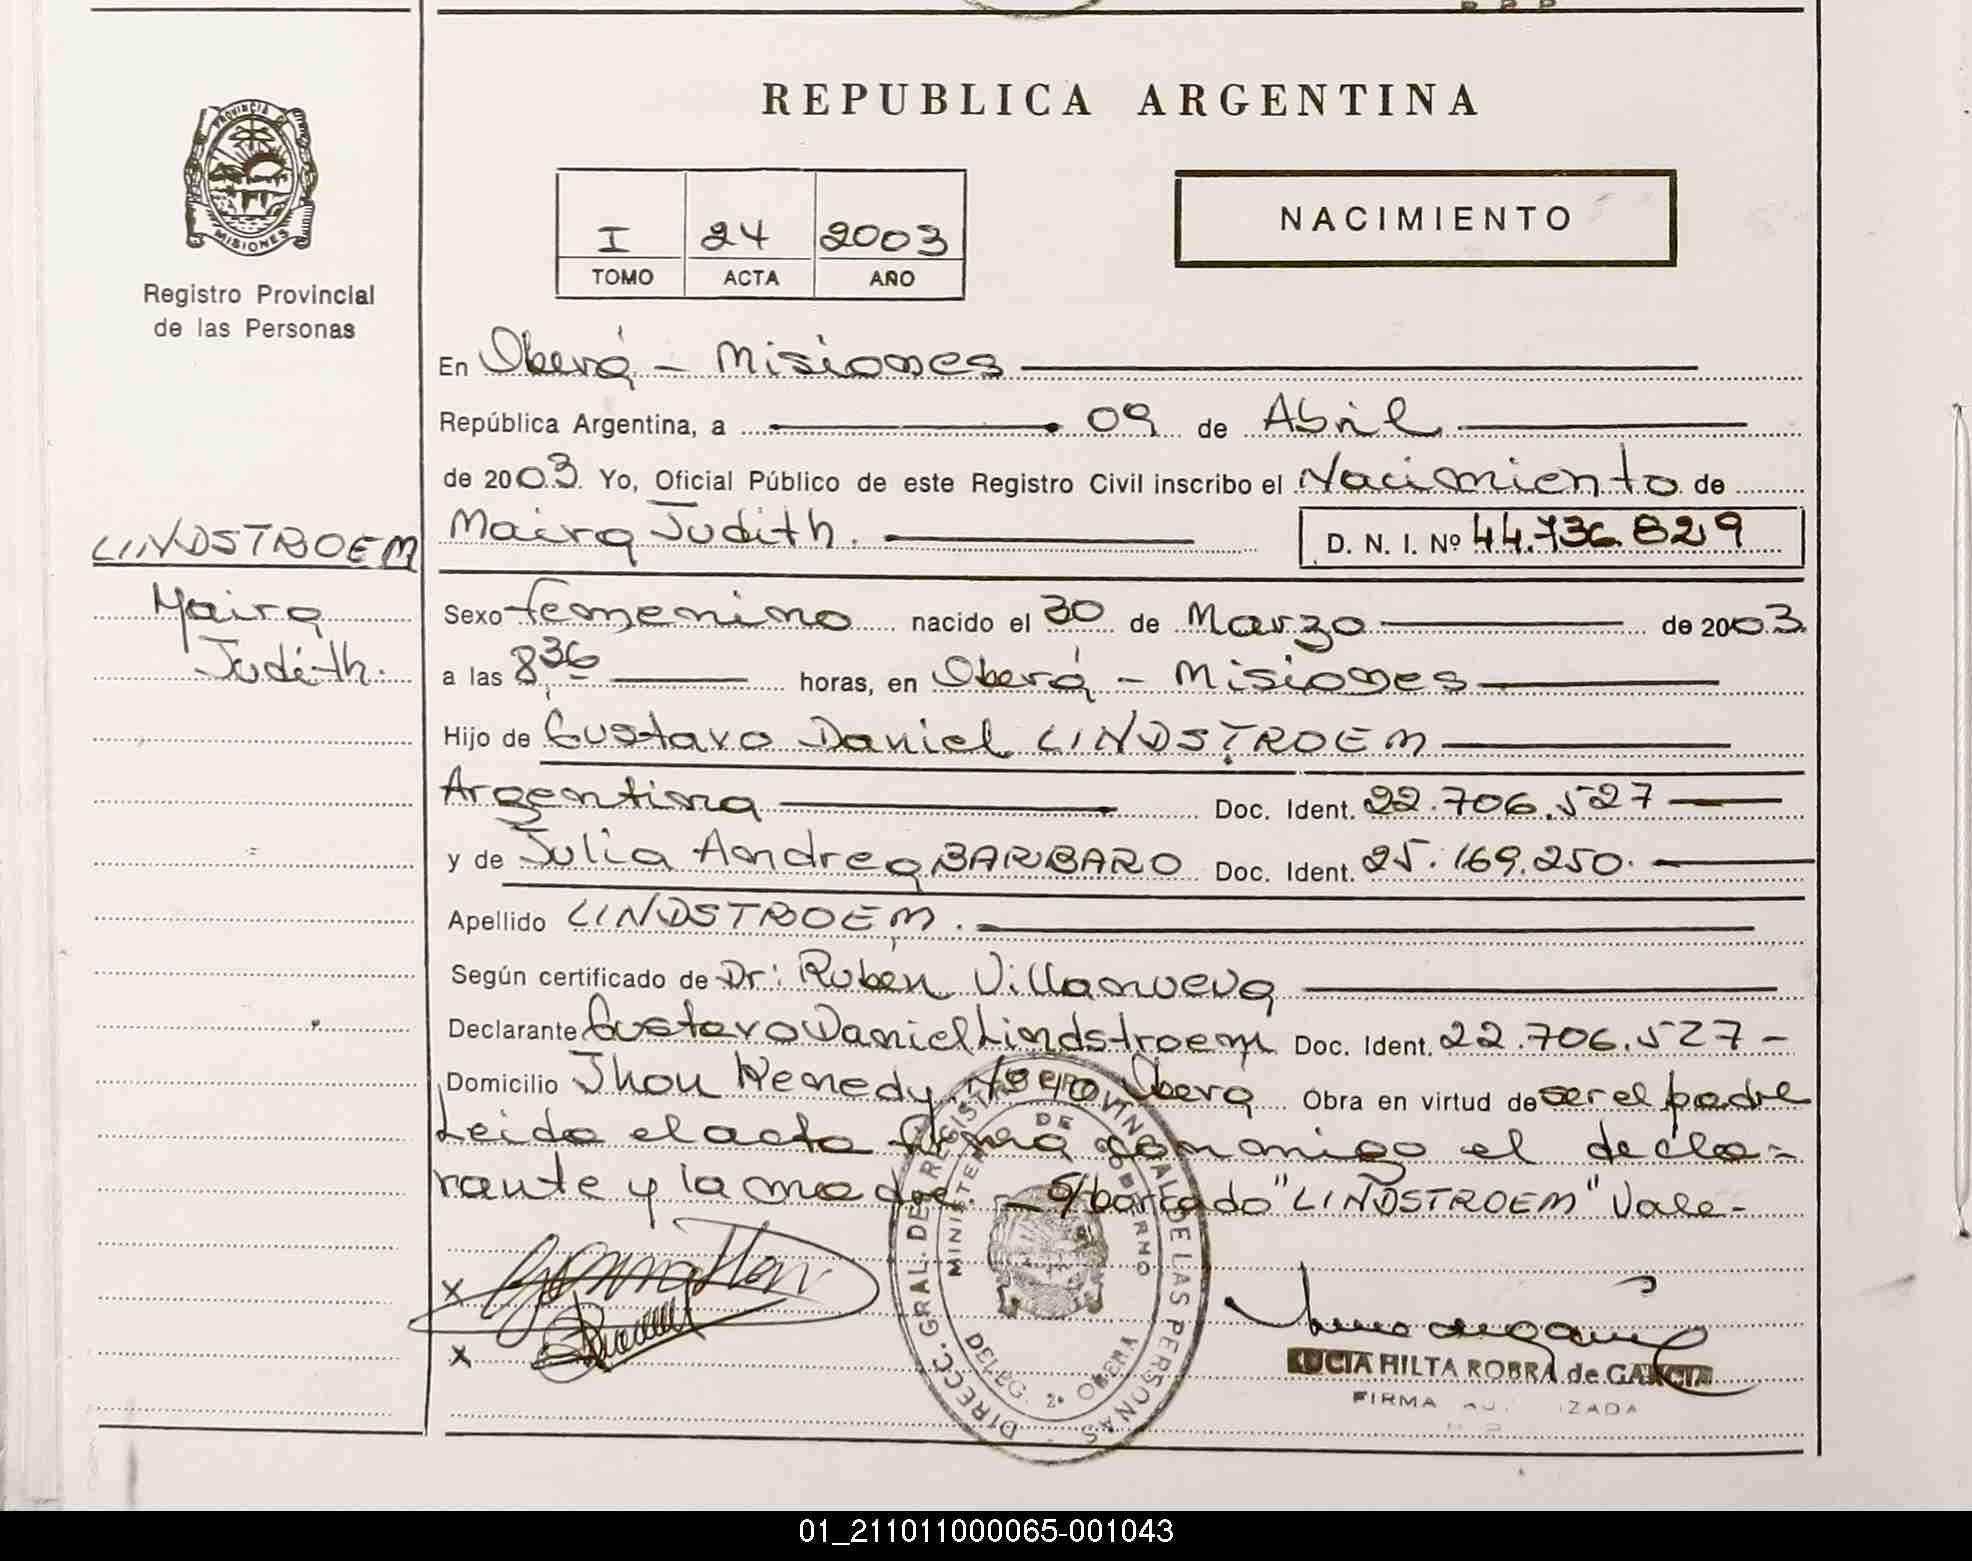 REPUBLICA ARGENTINA
PROVINCIA DE
MISIONES
Registro Provincial
de las Personas
I 24 2003
TOMO ACTA AÑO
NACIMIENTO
En Oberá - Misiones
República Argentina, a 09 de Abril
de 2003. Yo, Oficial Público de este Registro Civil inscribo el Nacimiento de
LINDSTROEM
Maira
Judith.
Maira Judith. D. N. I. Nº 44.736.829
Sexo femenino nacido el 30 de Marzo de 2003.
a las 8,36 horas, en Oberá - Misiones
Hijo de Gustavo Daniel LINDSTROEM
Argentina Doc. Ident. 22.706.527
y de Julia Andrea BARBARO Doc. Ident. 25.169.250.
Apellido LINDSTROEM.
Según certificado de Dr: Rubén Villanueva
Declarante Gustavo Daniel Lindstroem Doc. Ident. 22.706.527-
Domicilio Jhon Kenedy Oberá Obra en virtud de ser el padre
Leido el acta firma conmigo el decla-
rante y la madre. - S/borrado "LINDSTROEM" Vale-
DIRECC. GRAL. DEL REGISTRO PROVINCIAL DE LAS PERSONAS
MINISTERIO DE GOBIERNO
DELEG. 2ª OBERA
X
X
LUCIA HILTA ROBRA de GARCIA
FIRMA AUTORIZADA
01_211011000065-001043